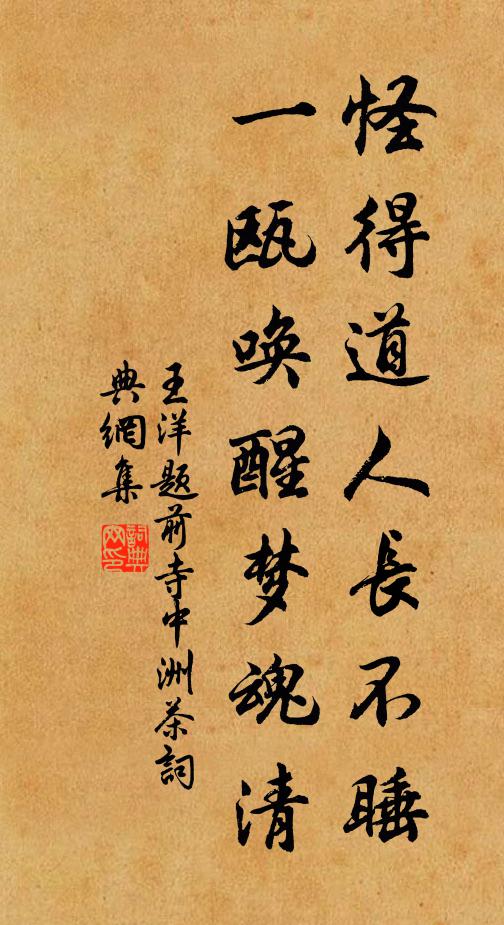 怪得道人長不睡
一甌唤醒梦魂清
王洋题前寺中洲茶詞
典網集
詞典网印